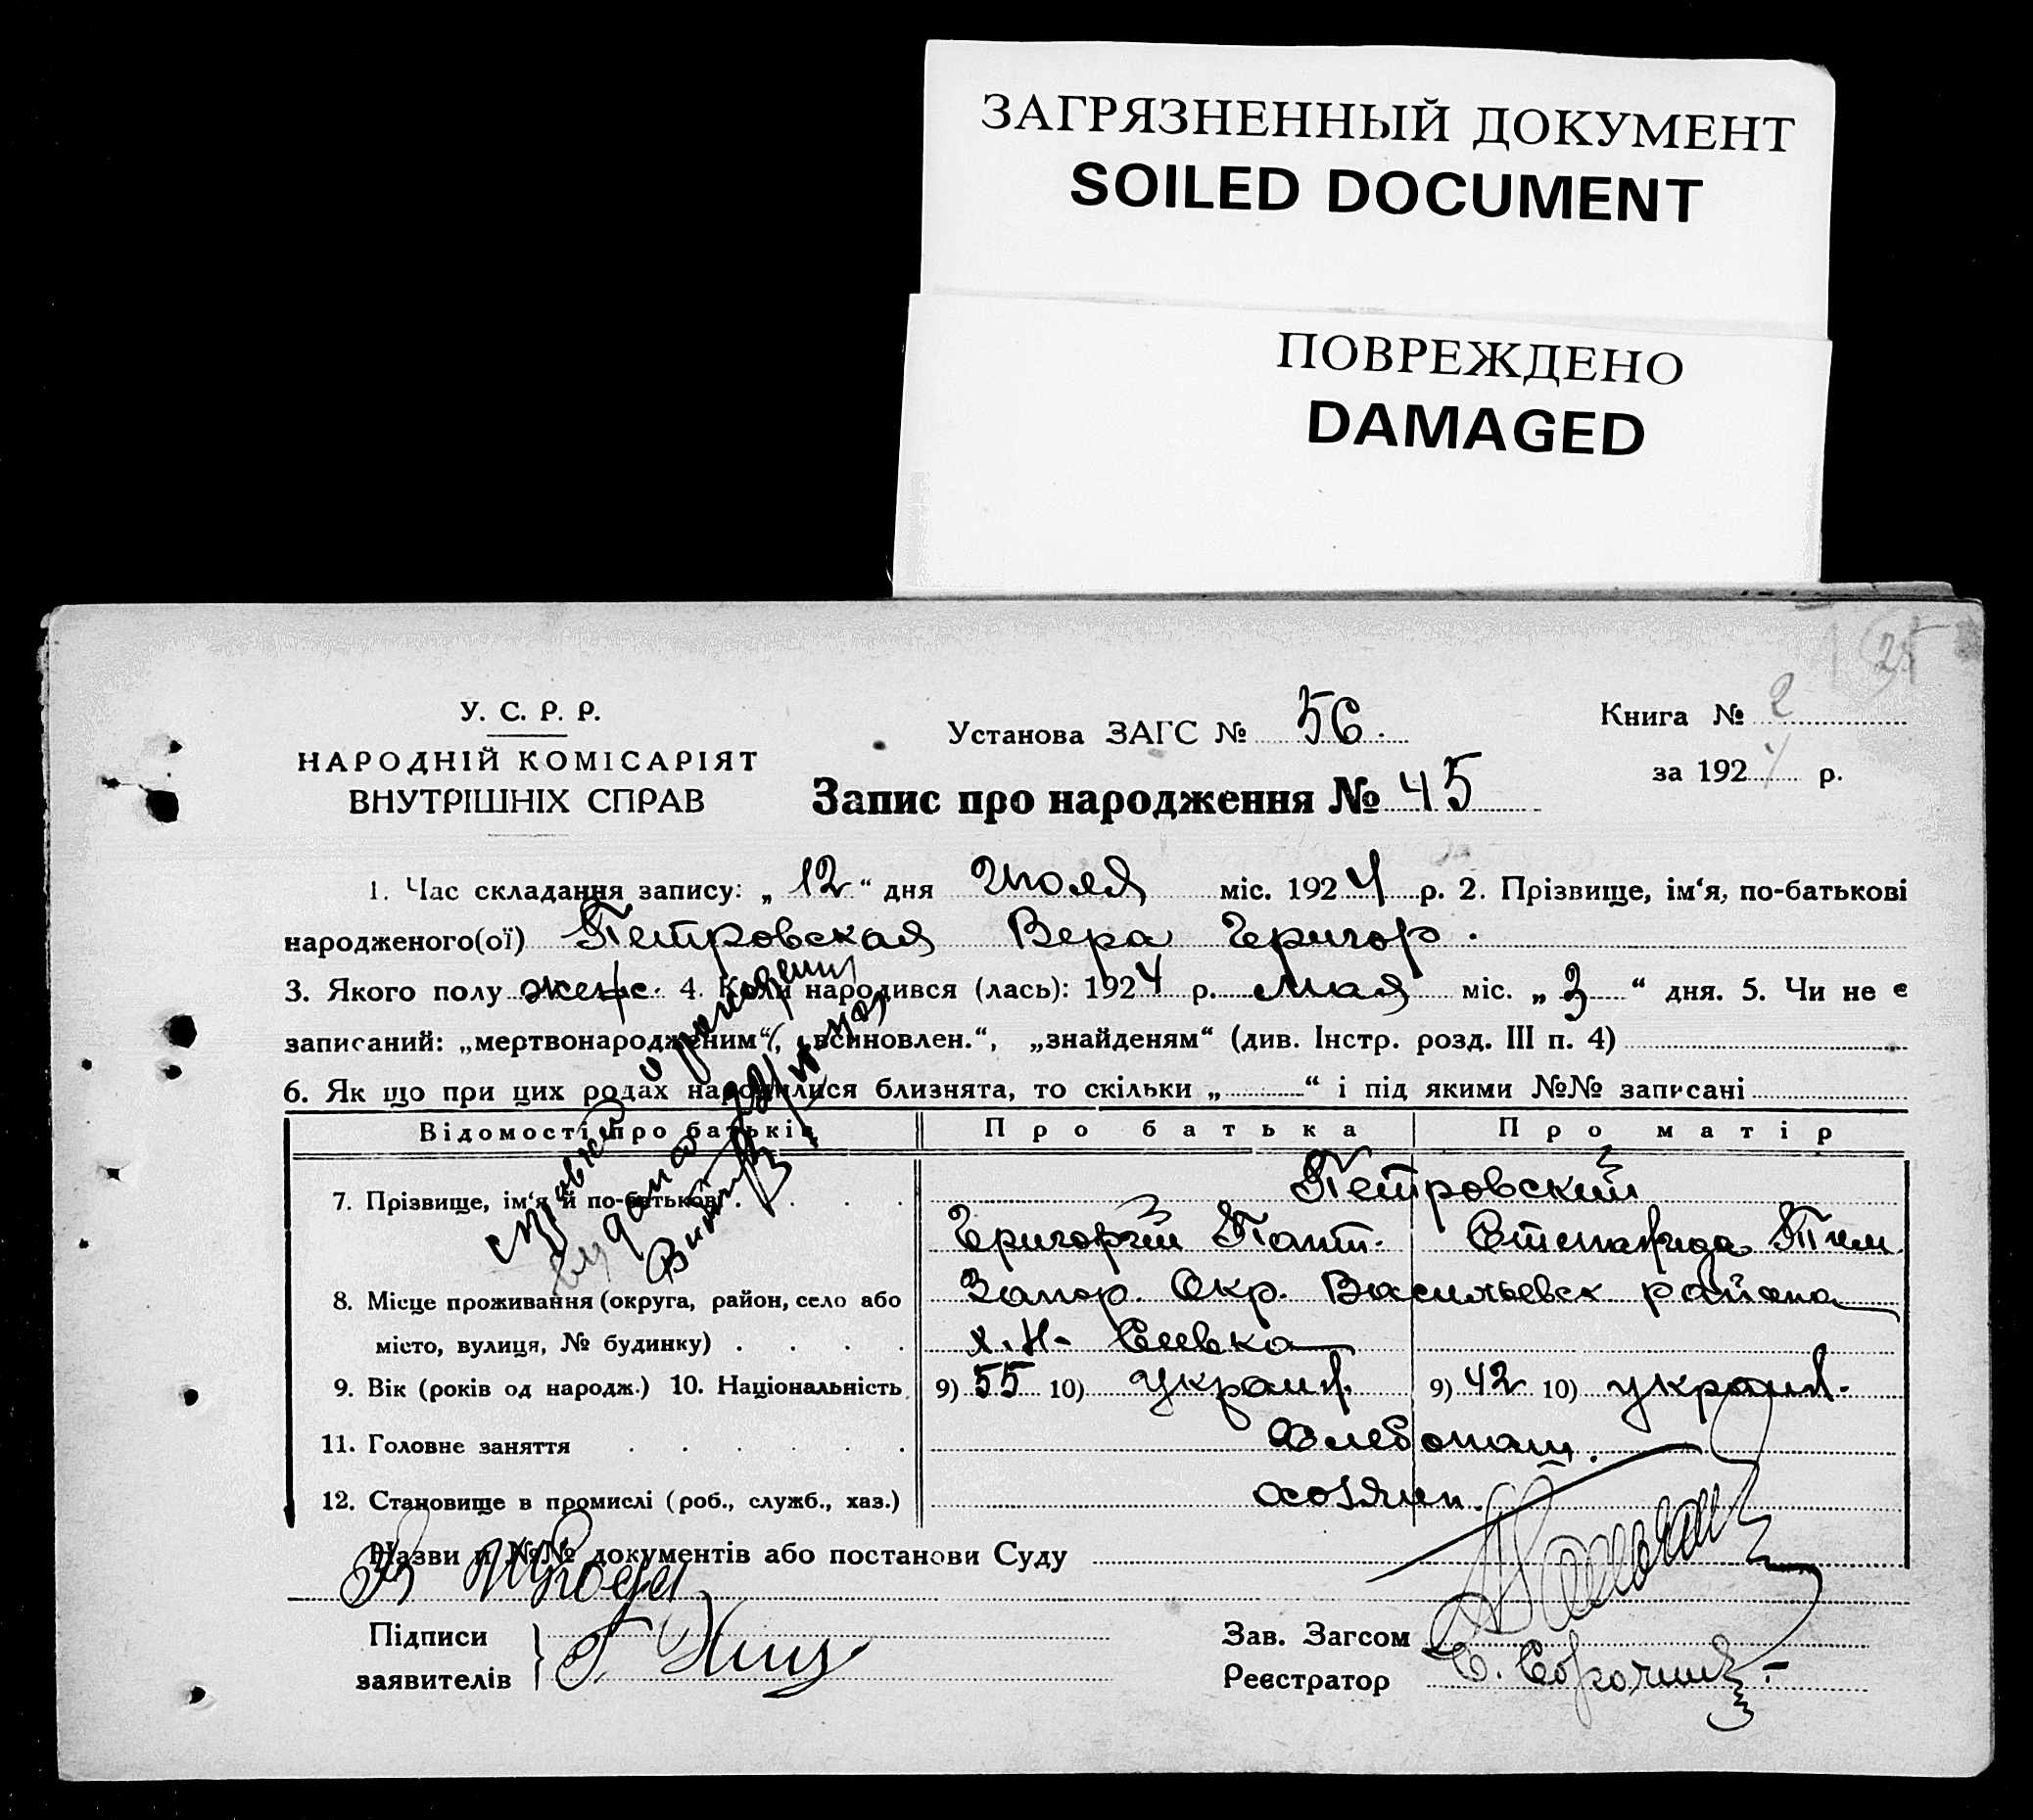 ЗАГРЯЗНЕННЫЙ ДОКУМЕНТ
SOILED DOCUMENT
ПОВРЕЖДЕНО
DAMAGED
25
У. С. Р. Р.
НАРОДНІЙ КОМІСАРІЯТ
ВНУТРІШНІХ СПРАВ
Установа ЗАГС № 56.
Книга № 2
за 1924 р.
Запис про народження № 45
1. Час складання запису: „ 12 “ дня Июля міс. 1924 р. 2. Прізвище, ім‘я, по-батькові
народженого(ої) Петровская Вера Григор.
3. Якого полу женс. 4. Коли народився (лась): 1924 р. мая міс. „ 3 “ дня. 5. Чи не є
записаний: „мертвонародженим“, „всиновлен.“, „знайденям“ (див. Інстр. розд. III п. 4)
6. Як що при цих родах народилися близнята, то скільки „ “ і під якими №№ записані
Відомості про батьків Про батька Про матір
7. Прізвище, ім‘я й по-батькові Петровский
Григорий Пант. Степанида Тим
8. Місце проживання (округа, район, село або Запор. Окр. Васильевск района
місто, вулиця, № будинку) х. Н-
9. Вік (років од народж.) 10. Національність 9) 55 10) украин. 9) 42 10) украин.
11. Головне заняття Хлебопаш.
12. Становище в промислі (роб., служб., хаз.) хозяин.
Назви й №№ документів або постанови Суду
Підписи
заявителів
Зав. Загсом
Реєстратор